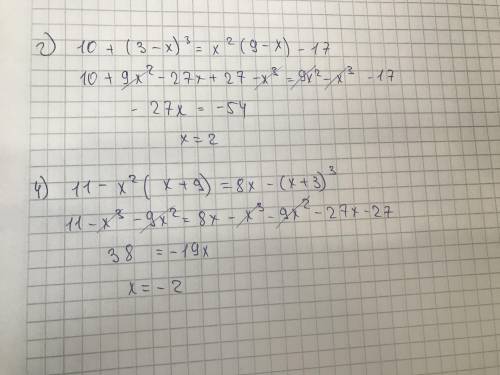 2) 10 + (3 - x)³ = x² (9 - x) - 17
10 + 9x² - 27x + 27 - x³ = 9x² - x³ - 17
- 27x = -54
x = 2
4) 11 - x² ( x + 9) = 8x - (x + 3)³
11 - x³ - 9x² = 8x - x³ - 9x² - 27x - 27
38 = -19x
x = -2